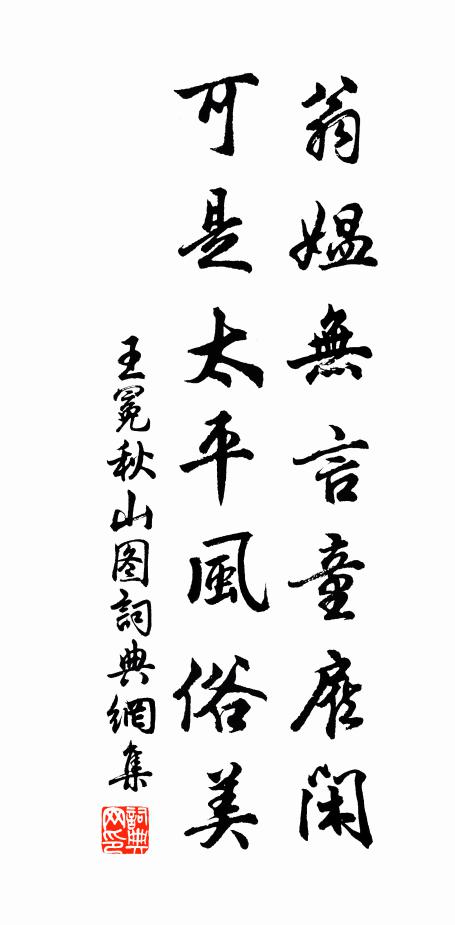 翁媼無言童雇閑
可是太平風俗美
王冕秋山图詞典網集
詞典网印